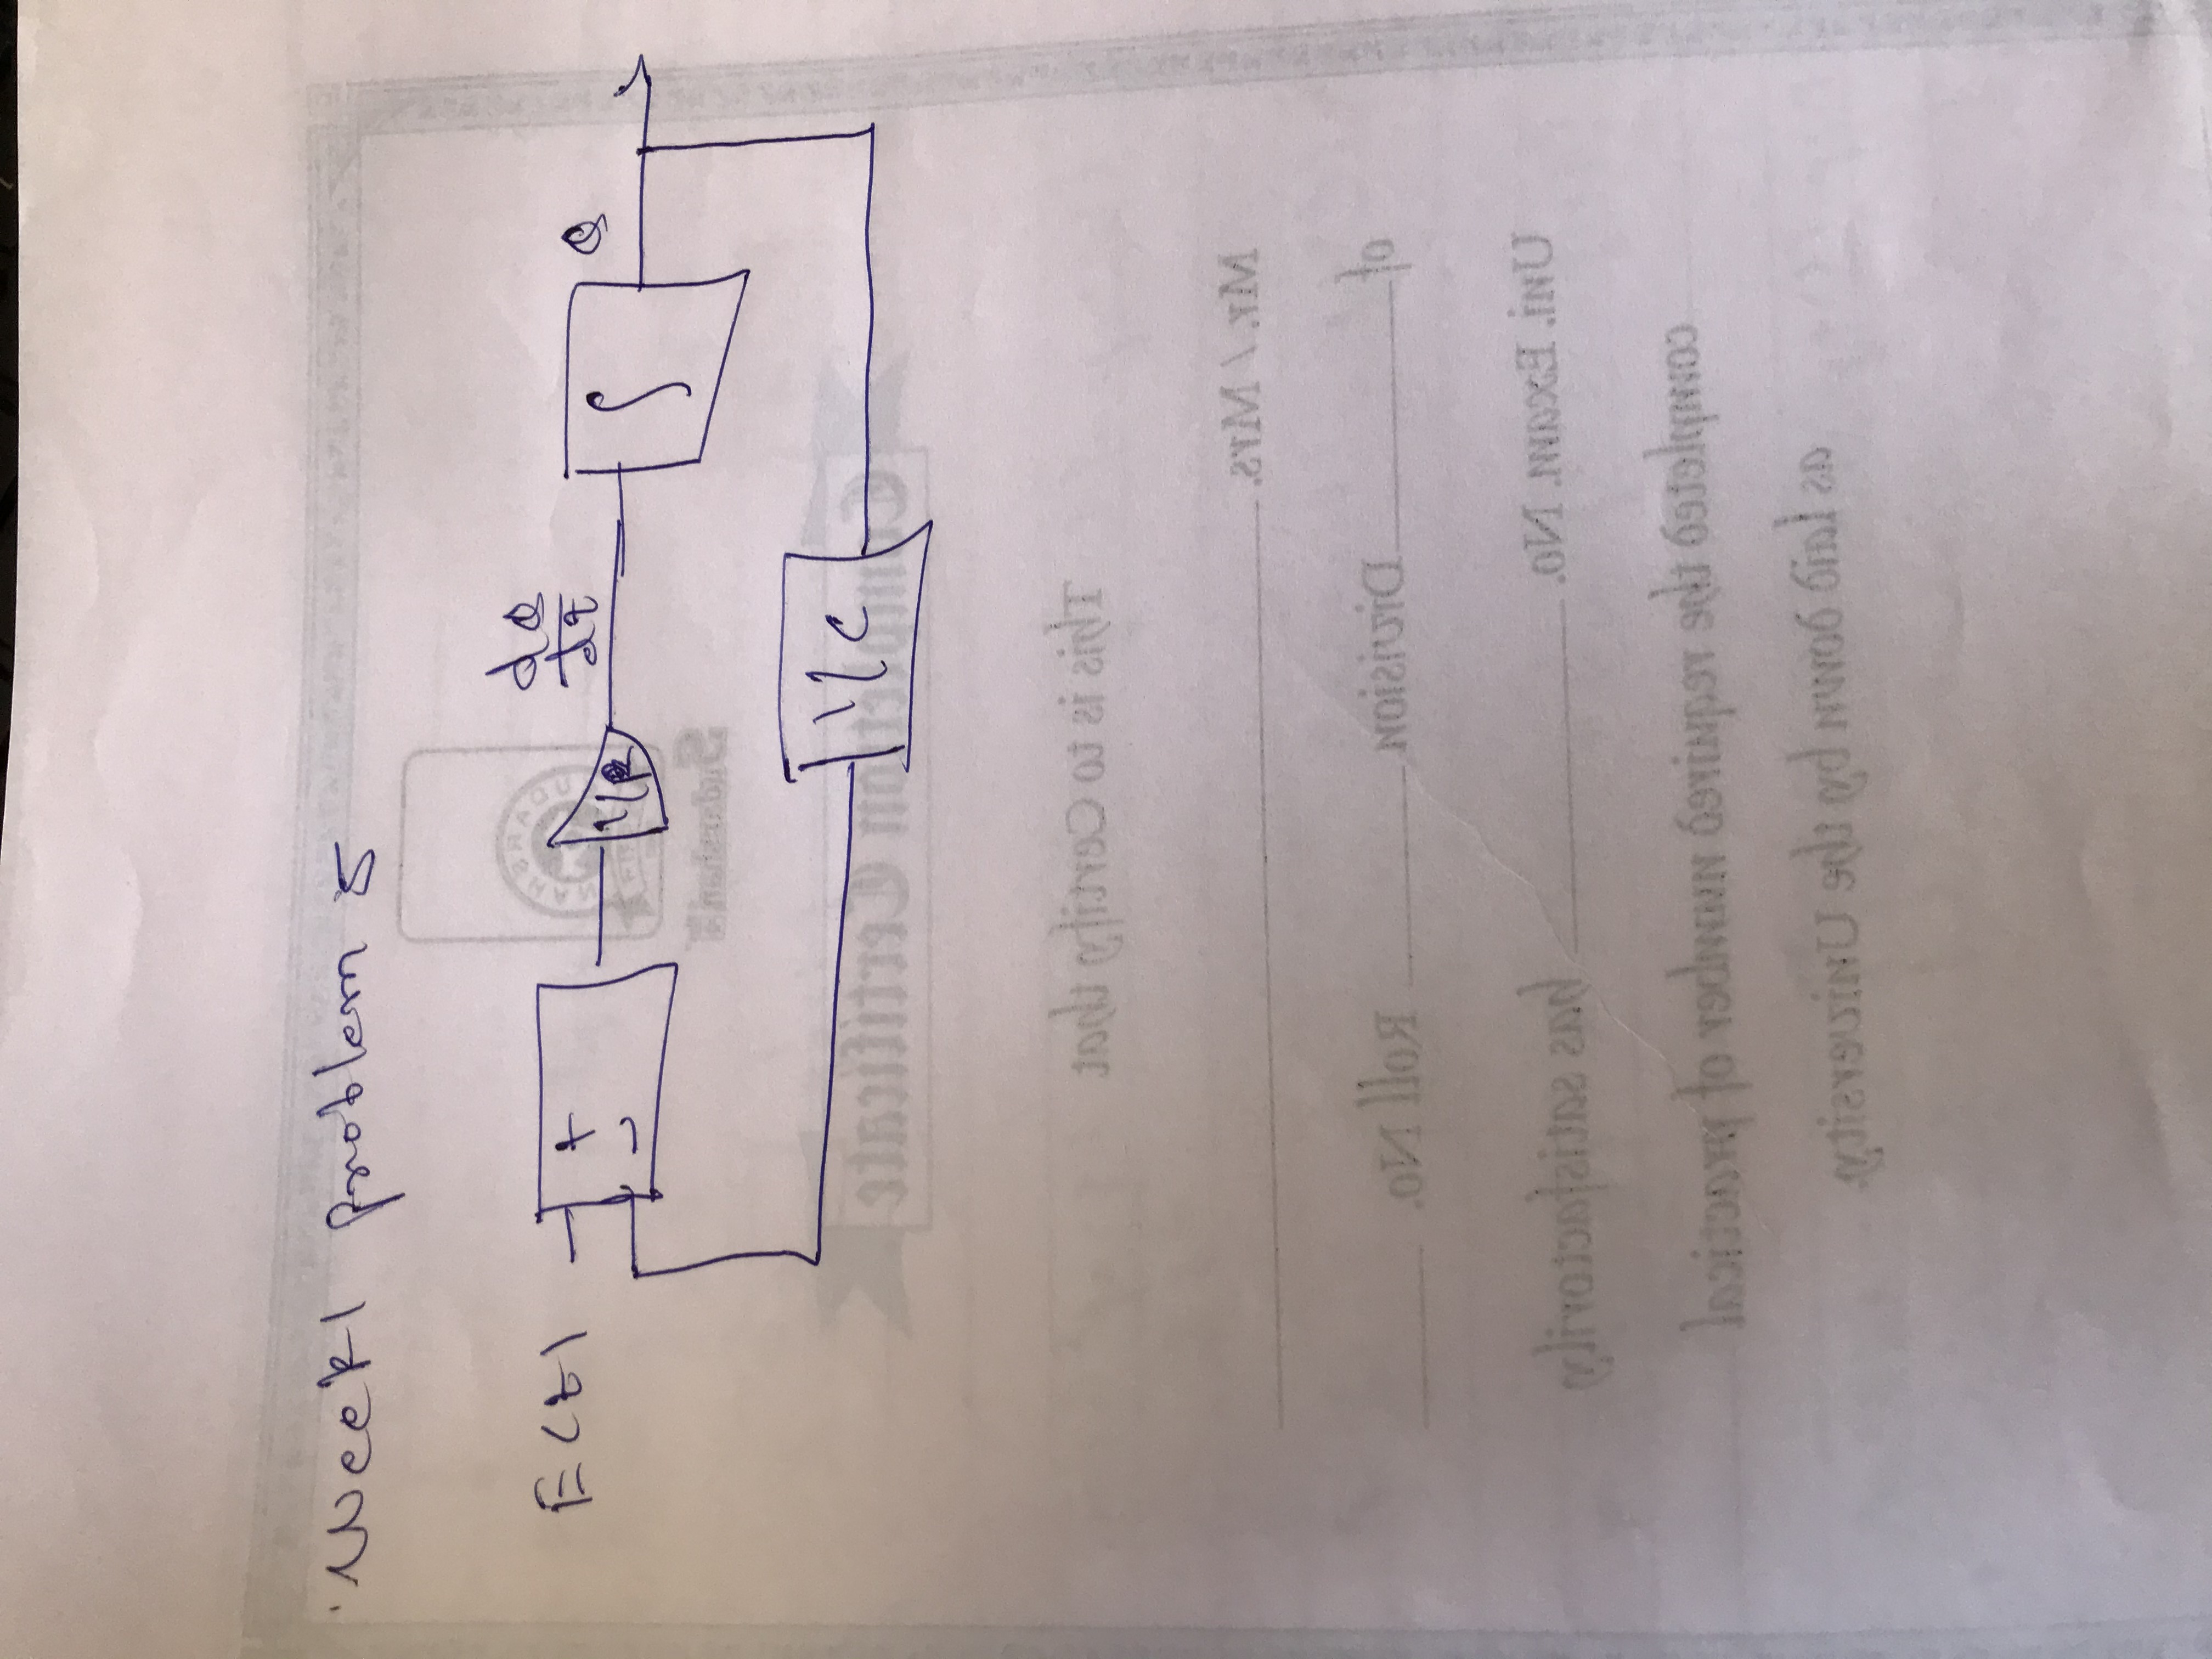 Week1 problem 5
E(t)
+
-
1/R
dQ
dt
∫
Q
1/C
Sudarshan
Completion Certificate
This is to Certify that
Mr. / Mrs.
of Division Roll No.
Uni. Exam. No. has satisfactorily
completed the required number of practical
as laid down by the University.